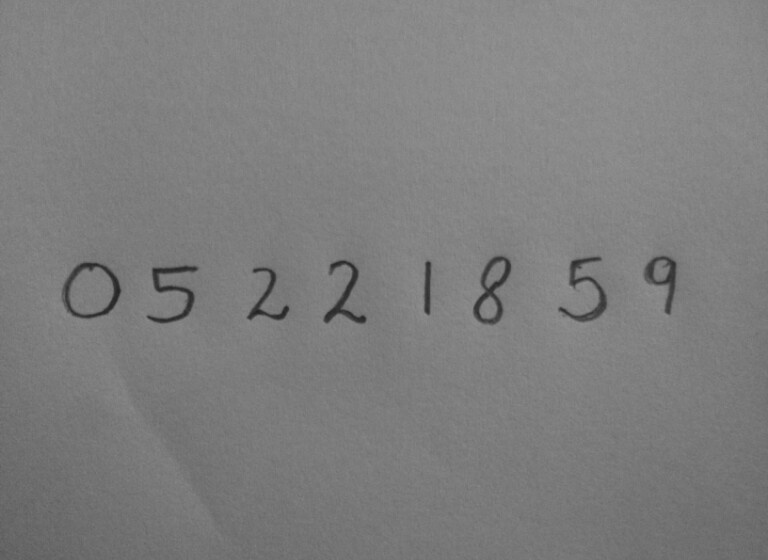 05 22 18 59